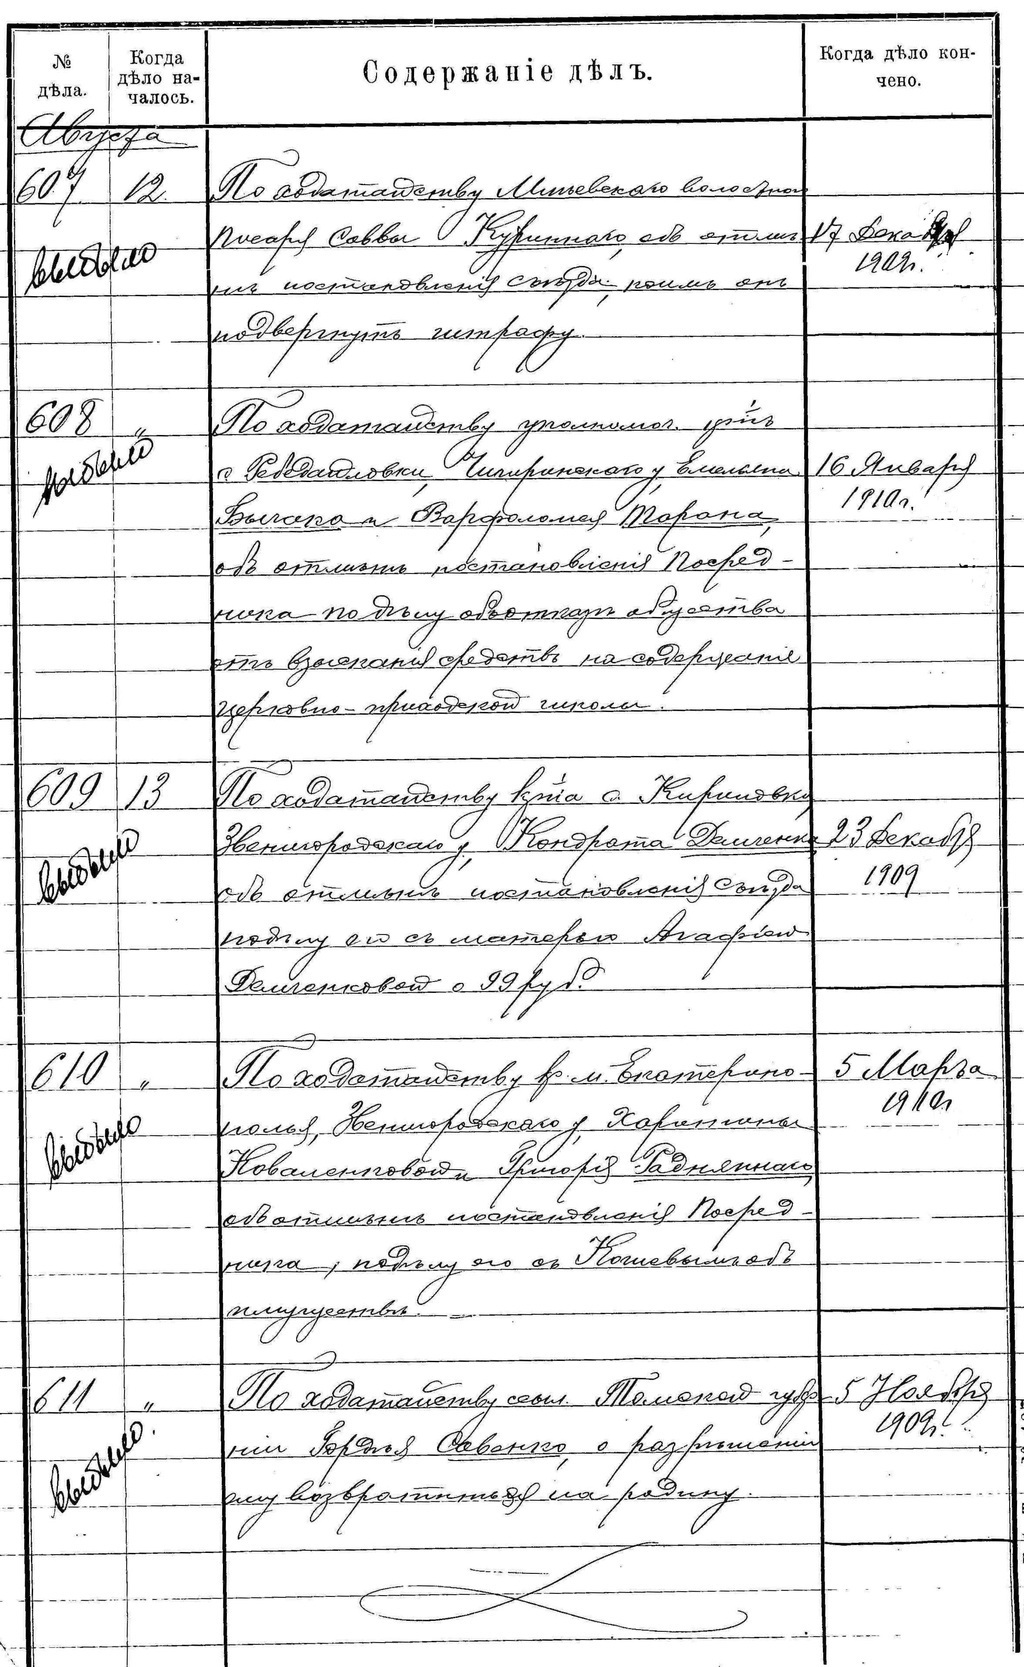 № дѣла.
Когда дѣло началось.
Содержаніе дѣлъ.
Когда дѣло кончено.
Августа
607 12. По ходатайству Млѣевскаго волостнаго
писаря Саввы Куриннаго, объ отмѣ- 17 Декабря
нѣ постановленія съѣзда, коимъ онъ 1909г.
подвергнутъ штрафу.
выбыло
608 „ По ходатайству уполномоч. кр-нъ
с. Ребедайловки, Чигиринскаго у, Емельяна 16 Января
Бычака и Варфоломея Тарана, 1910г.
объ отмѣнѣ постановленія Посред-
ника по дѣлу объ отказѣ общества
отъ взысканія средствъ на содержаніе
церковно-приходской школы.
выбыло
609 13 По ходатайству кр-на с. Кириловки
Звенигородскаго у, Кондрата Демченка 23 Декабря
объ отмѣнѣ постановленія съѣзда 1909
по дѣлу его съ матерью Агафіей
Демченковой о 99 руб.
выбыло
610 „ По ходатайству кр. м. Екатерино- 5 Марта
поля, Звенигородскаго у, Харитины 1910г
Коваленковой и Григорія
объ отмѣнѣ постановленія Посред-
ника, по дѣлу его съ Кошевымъ объ
имуществѣ.
выбыло
611 „ По ходатайству ссыл. Томской губер- 5 Ноября
ніи Гордѣя Савенко, о разрѣшеніи 1909г.
ему возвратиться на родину.
выбыло.